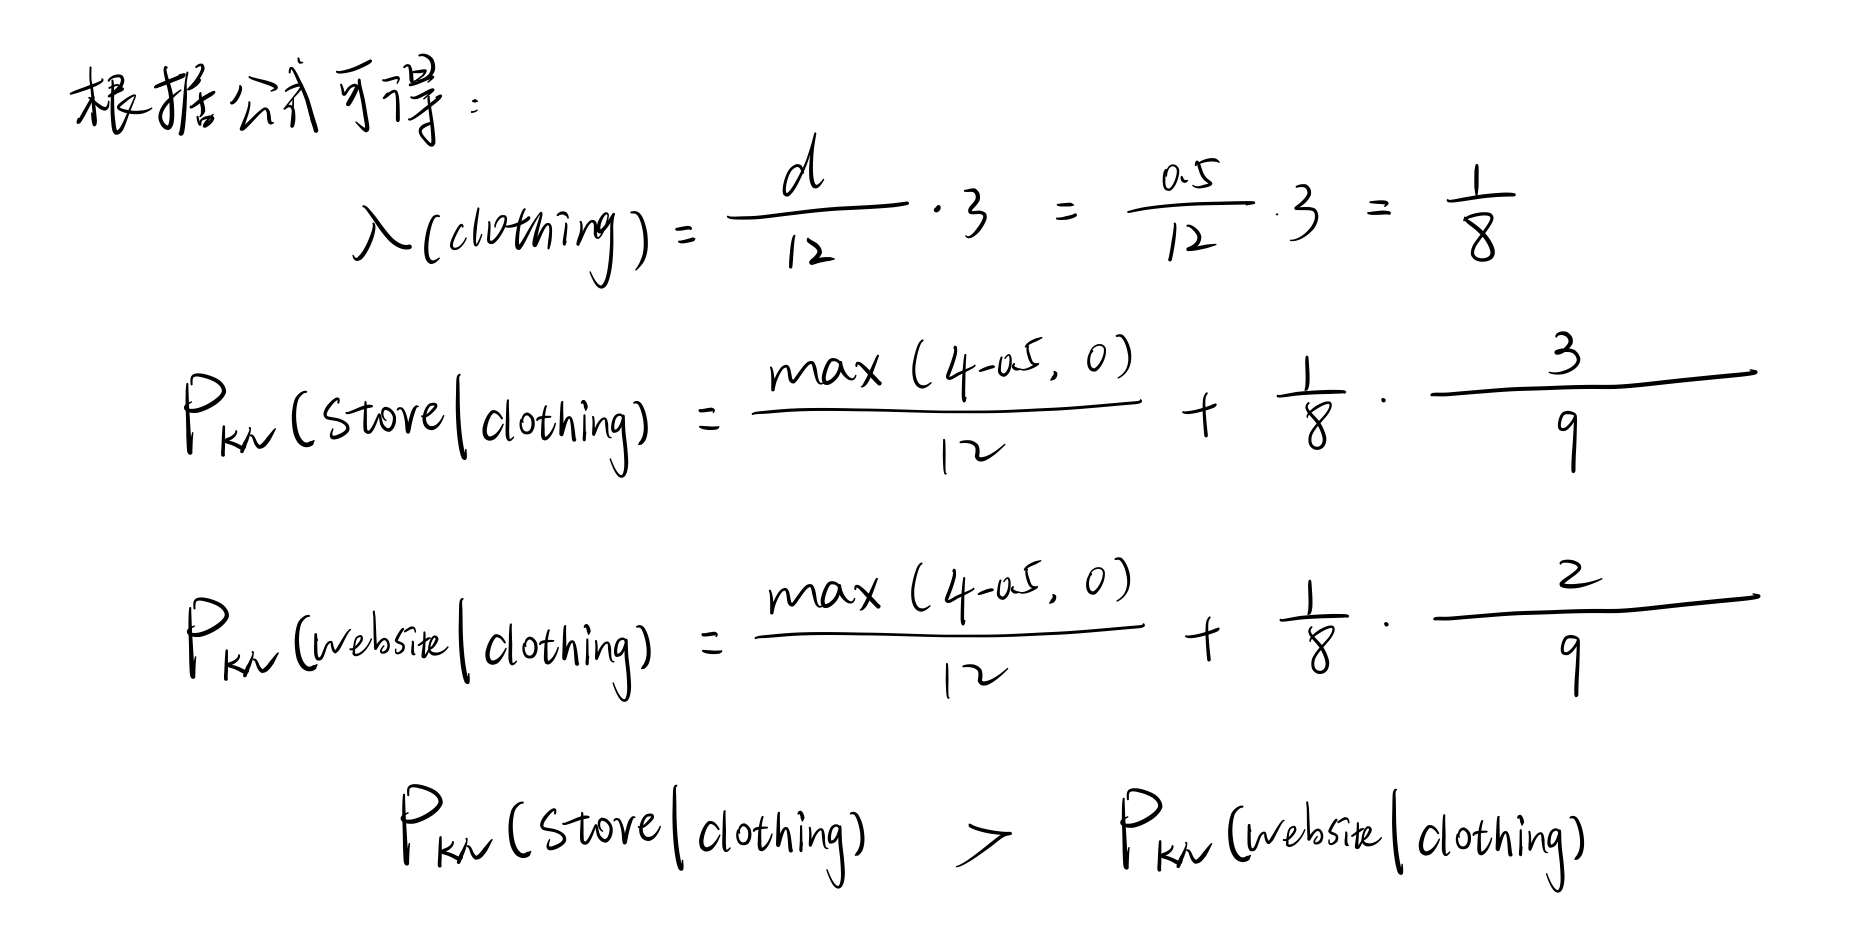 根据公式可得：
λ(clothing) = d/12 · 3 = 0.5/12 · 3 = 1/8
P_KN(store|clothing) = max(4-0.5, 0)/12 + 1/8 · 3/9
P_KN(website|clothing) = max(4-0.5, 0)/12 + 1/8 · 2/9
P_KN(store|clothing) > P_KN(website|clothing)